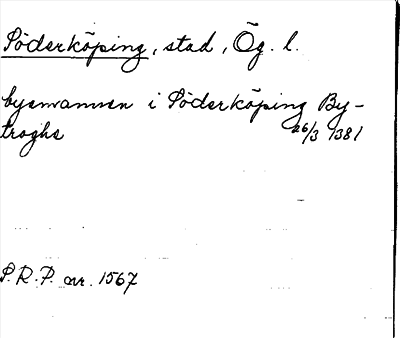 Söderköping, stad, Ög. l.
bysmannen i Söderköping By-
troghs 26/3 1381
S.R.P. nr. 1567